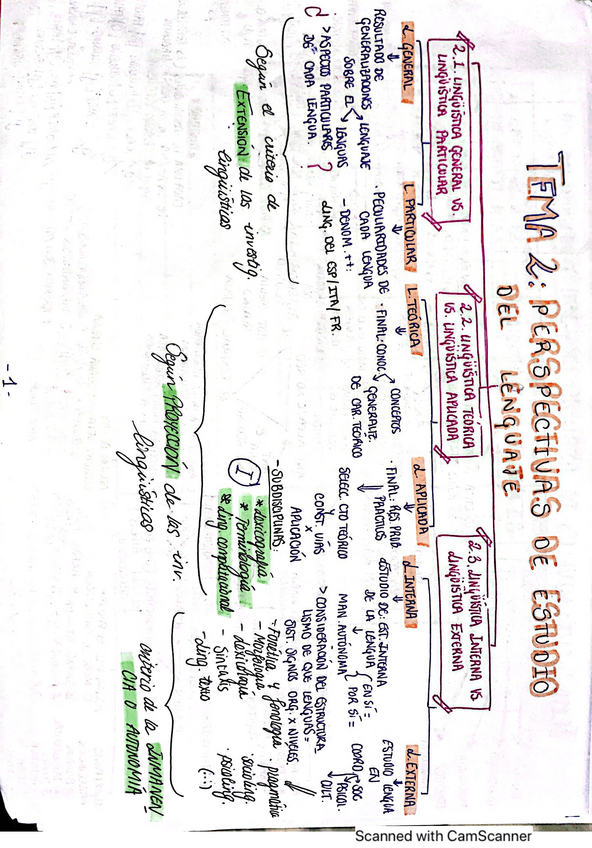 TEMA 2: PERSPECTIVAS DE ESTUDIO
DEL LENGUAJE
2.1. LINGÜÍSTICA GENERAL VS.
LINGÜÍSTICA PARTICULAR
L. GENERAL
RESULTADO DE
GENERALIZACIONES
SOBRE EL
LENGUAJE
LENGUAS
> ASPECTOS PARTICULARES
DE CADA LENGUA.
¿ ?
L. PARTICULAR
· PECULIARIDADES DE
CADA LENGUA
- DENOM. ++:
LING. DEL ESP/ITA/FR.
Según el criterio de
EXTENSIÓN de las investig.
lingüísticas
2.2. LINGÜÍSTICA TEÓRICA
VS. LINGÜÍSTICA APLICADA
L. TEÓRICA
· FINAL: CONOC
CONCEPTOS
GENERALIZ.
DE CAR TEÓRICO
L. APLICADA
· FINAL: RES PROB
PRÁCTICOS
SELECC CTO TEÓRICO
Y
CONST. VÍAS
X
APLICACIÓN
- SUBDISCIPLINAS:
* Lexicografía
* Terminología
* Ling. computacional
I
Según PROYECCIÓN de las inv.
lingüísticas
2.3. LINGÜÍSTICA INTERNA VS
LINGÜÍSTICA EXTERNA
L. INTERNA
ESTUDIO DE: EST. INTERNA
DE LA LENGUA
EN SÍ =
POR SÍ =
MAN. AUTÓNOMA
> CONSIDERACIÓN DEL ESTRUCTURA
LISMO DE QUE LENGUAS =
SIST. SIGNOS ORG. X NIVELES.
- Fonética y fonología
- Morfología
- Lexicología
- Sintaxis
Ling. texto
L. EXTERNA
ESTUDIO LENGUA
EN
COORD
SOC
PSICOL.
CULT.
· pragmática
· socioling.
· psicoling.
(...)
criterio de la INMANEN
CIA O AUTONOMÍA
-1-
Scanned with CamScanner